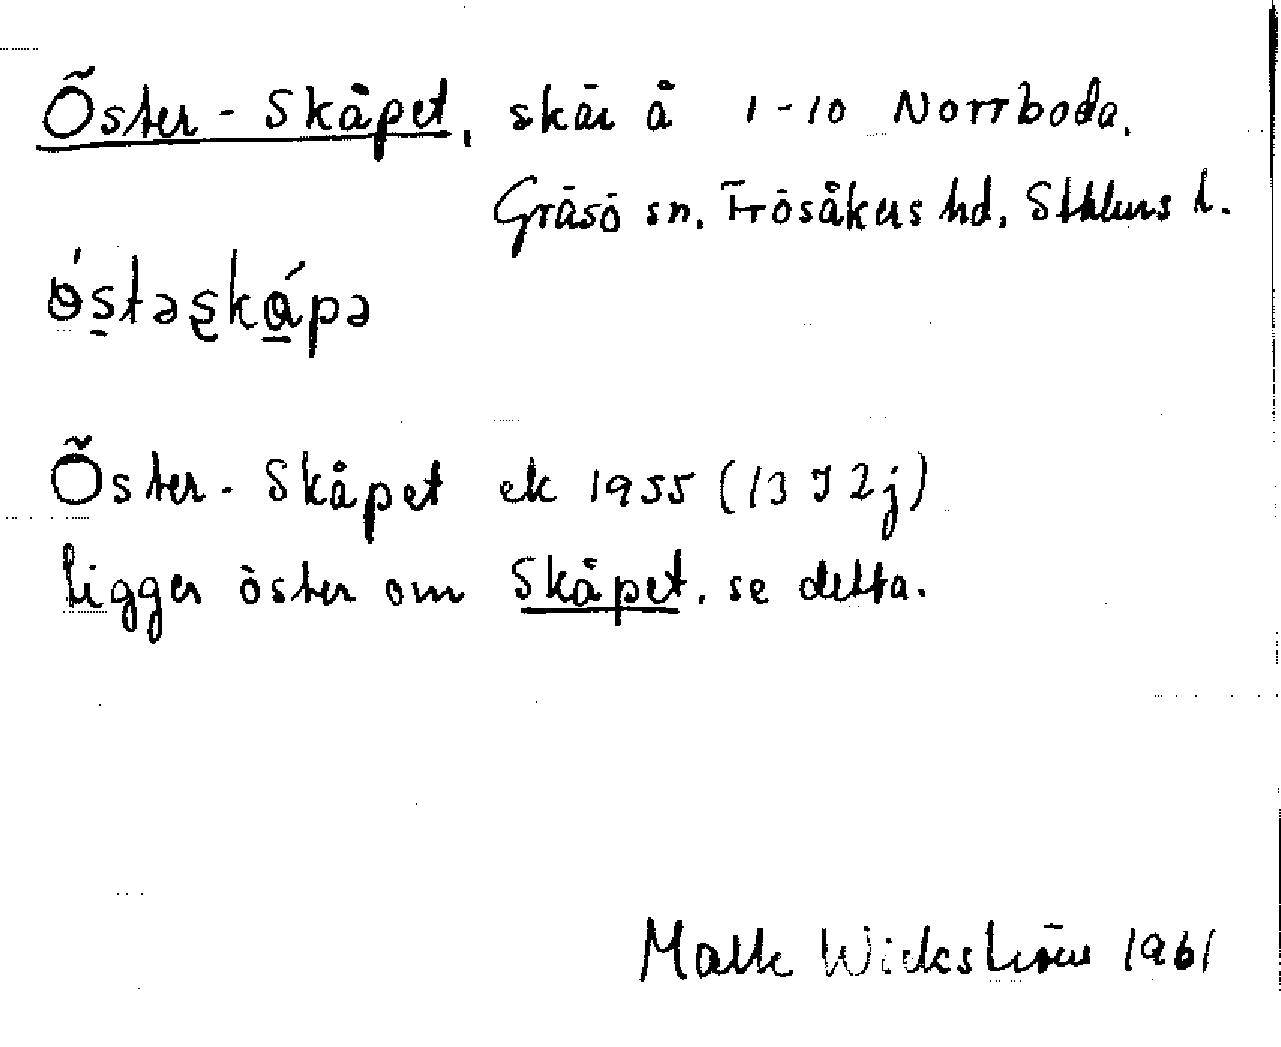 Öster-Skåpet, skär å 1-10 Norrboda,
Gräsö sn. Frösåkers hd, Sthlms l.
Öster-Skåpet ek 1955 (13 I 2j)
ligger öster om Skåpet. se detta.
Wickström 1961